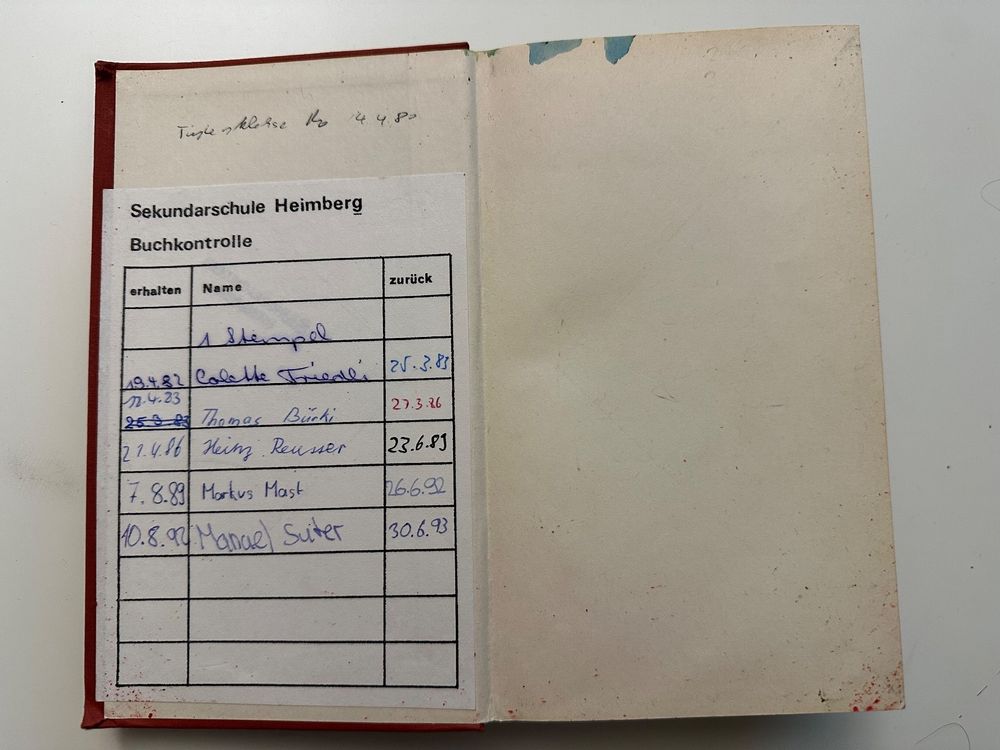 4.4.80
Sekundarschule Heimberg
Buchkontrolle
erhalten Name zurück
1 Stempel
19.4.82 Colette Friedli 25.3.83
12.4.83
25.3.83 Thomas Bürki 27.3.86
21.4.86 Heinz Reusser 23.6.89
7.8.89 Markus Mast 26.6.92
10.8.92 Manuel Suter 30.6.93